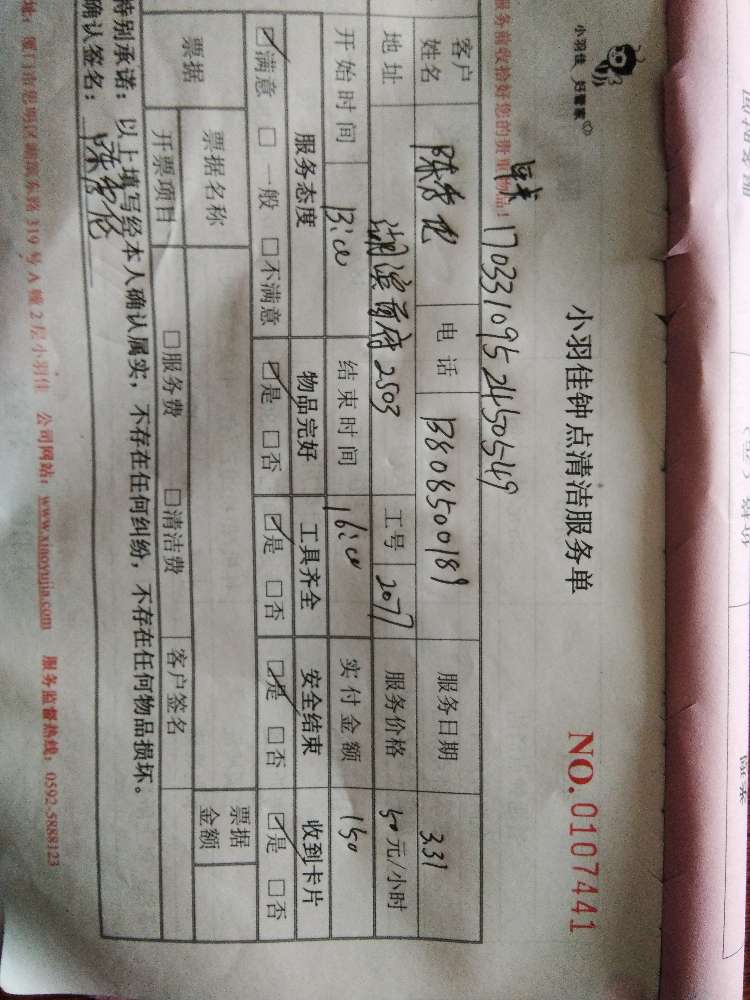 小羽佳 好管家
小羽佳钟点清洁服务单
NO.0107441
服务前收拾好您的贵重物品！
17033109524505549
客户姓名 电话 13808500189 服务日期 3.31
地址 湖滨首府2503 工号 2077 服务价格 50元/小时
开始时间 13:00 结束时间 16:00 实付金额 150
服务态度 物品完好 工具齐全 安全结束 收到卡片
☑满意 □一般 □不满意 ☑是 □否 ☑是 □否 ☑是 □否 ☑是 □否
票据 票据名称 票据金额
开票项目 □服务费 □清洁费 客户签名
特别承诺：以上填写经本人确认属实，不存在任何纠纷，不存在任何物品损坏。
确认签名：
址：厦门市思明区湖滨东路319号A幢2层小羽佳 公司网站：www.xiaoyujia.com 服务监督热线：0592-5888123